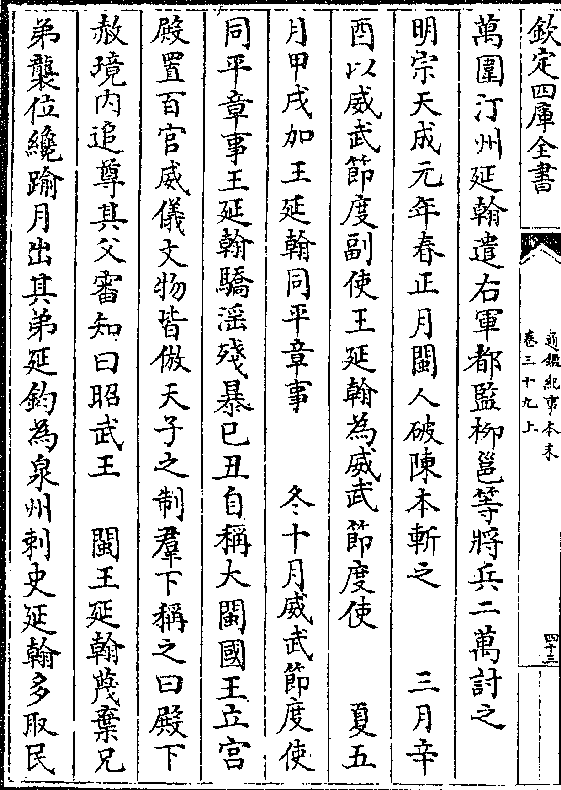 欽定四庫全書
通鑑紀事本末
卷三十九上
四十三
萬圍汀州延翰遣右軍都監柳邕等將兵二萬討之
明宗天成元年春正月閩人破陳本斬之 三月辛
酉以威武節度副使王延翰為威武節度使 夏五
月甲戌加王延翰同平章事 冬十月威武節度使
同平章事王延翰驕淫殘暴己丑自稱大閩國王立宮
殿置百官威儀文物皆倣天子之制羣下稱之曰殿下
赦境内追尊其父審知曰昭武王 閩王延翰蔑棄兄
弟襲位纔踰月出其弟延鈞為泉州刺史延翰多取民